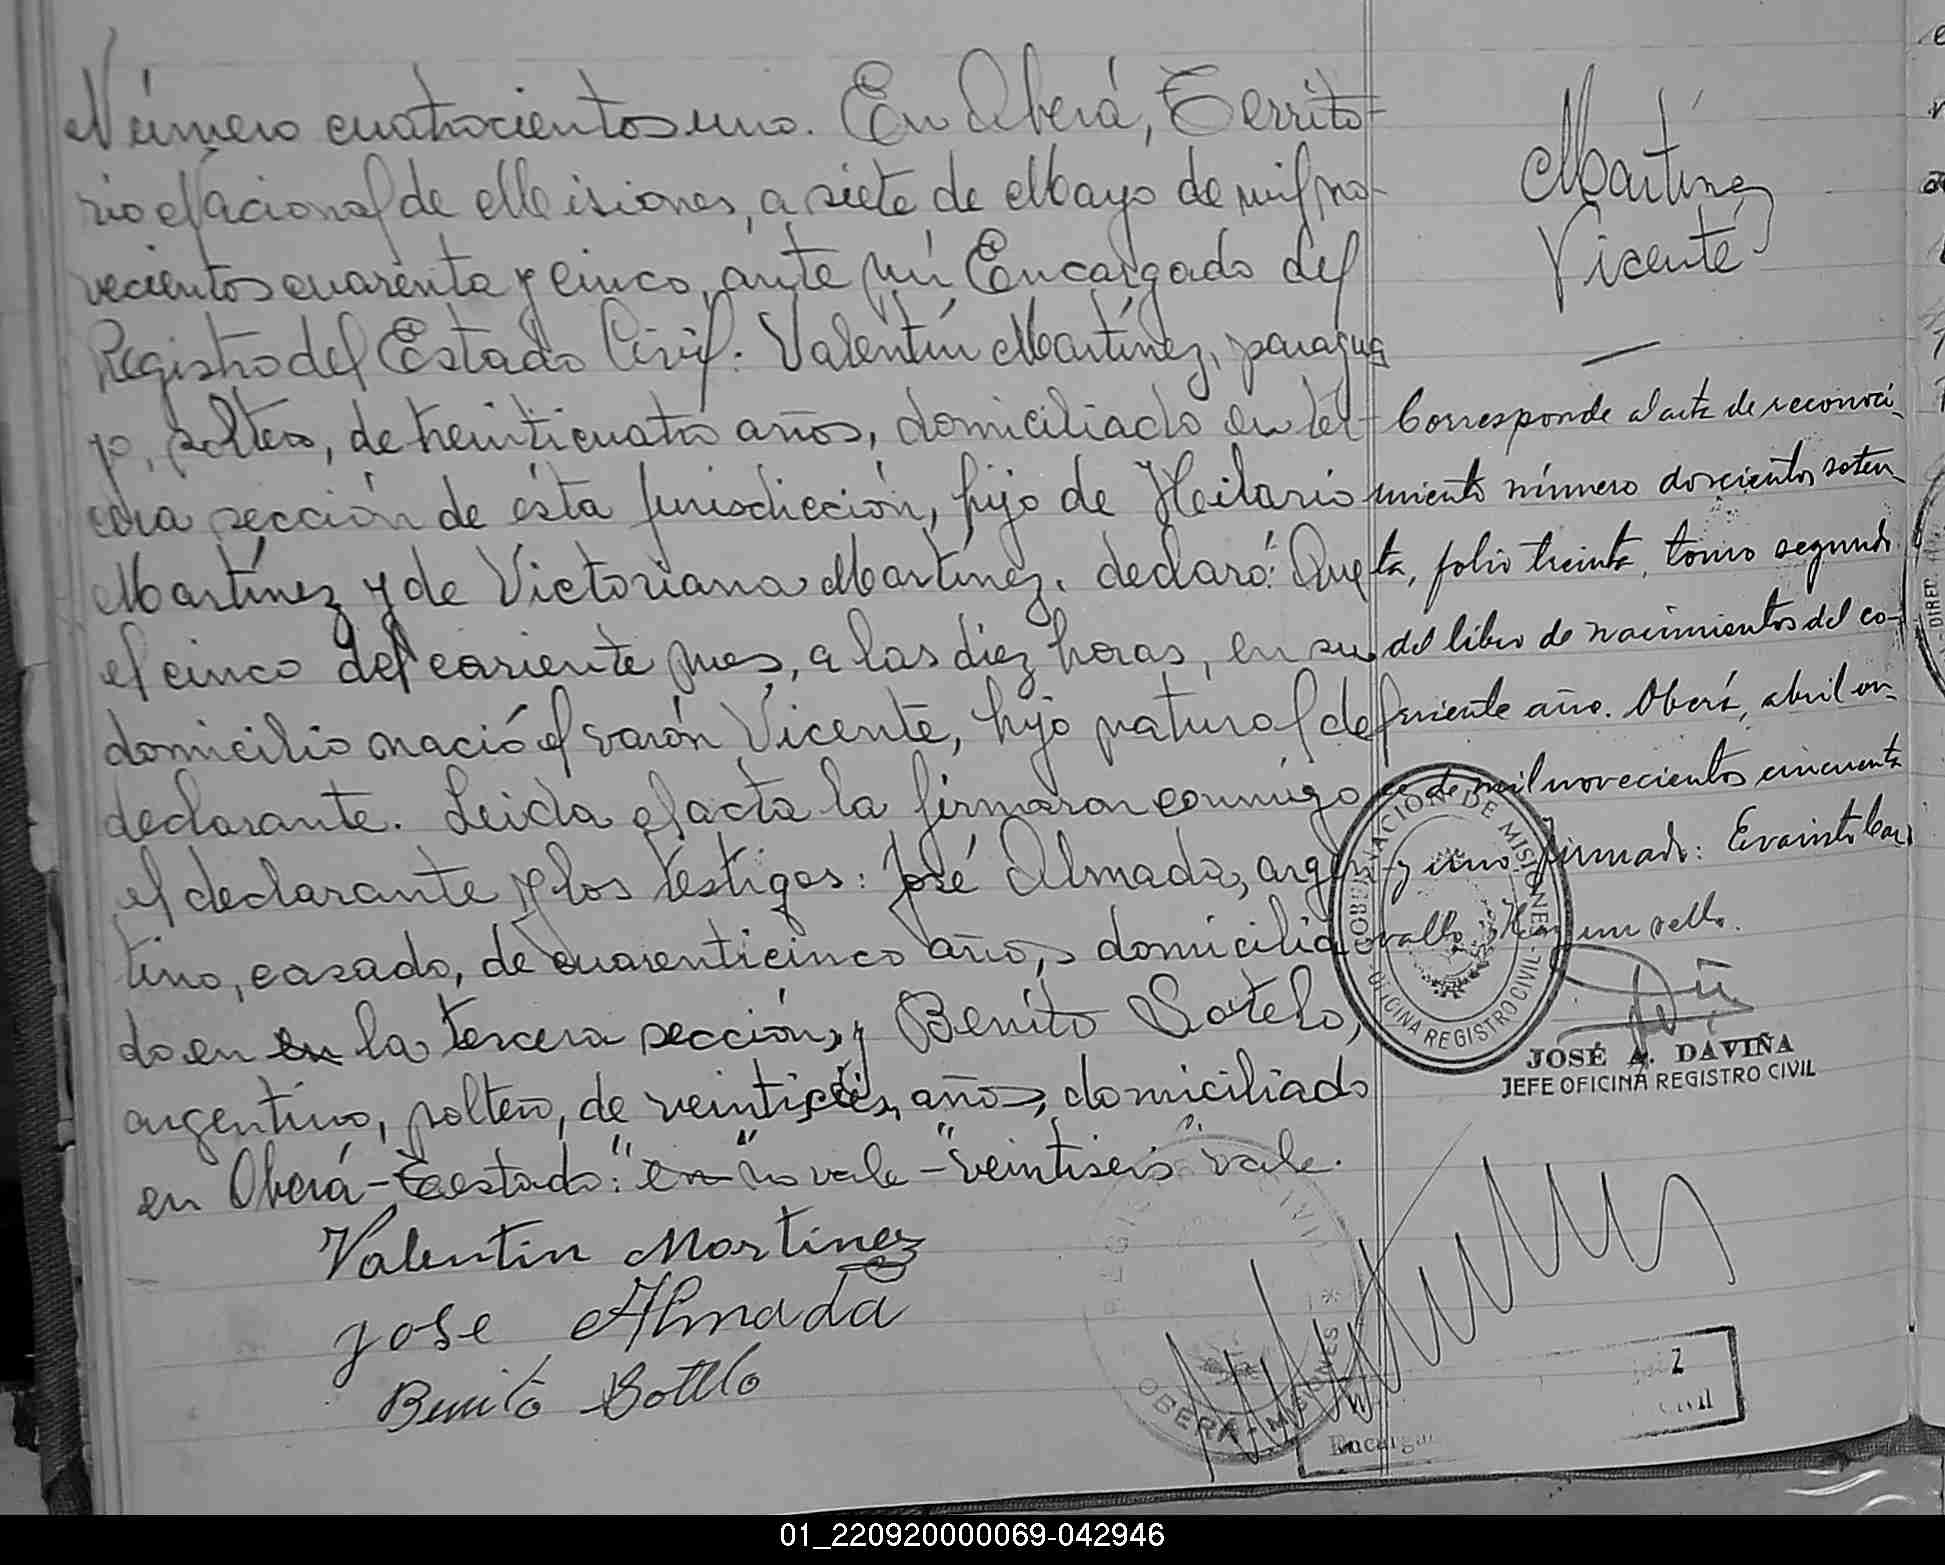 Número cuatrocientos uno. En Oberá, Territo-
rio Nacional de Misiones, a siete de Mayo de mil no-
vecientos cuarenta y cinco, ante mí Encargado del
Registro del Estado Civil. Valentín Martínez, paragua
yo, soltero, de treinticuatro años, domiciliado en la ter-
cera sección de ésta jurisdicción, hijo de Heilario
Martínez y de Victoriana Martínez, declaró: Que
el cinco del coriente mes, a las diez horas, en su
domicilio nació el varón Vicente, hijo natural del
declarante. Leida el acta la firmaron conmigo
el declarante y los testigos: José Almada, argen-
tino, casado, de cuarenticinco años, domicilia
do en en la tercera sección, y Benito Sotelo,
argentino, soltero, de veintiseis, años, domiciliado
en Oberá - Testado: "en" no vale - "veintiseis" vale.
Valentin Martinez
Jose Almada
Benito Sotelo
Martínez
Vicente
Corresponde al acta de reconoci-
miento número doscientos seten-
ta, folio treinta, tomo segundo
del libro de nacimientos del co-
rriente año. Oberá, abril on-
ce de mil novecientos cincuenta
y uno firmado: Evaristo Car
vallo. Hay un sello.
GOBERNACION DE MISIONES
OFICINA REGISTRO CIVIL
JOSÉ A. DAVIÑA
JEFE OFICINA REGISTRO CIVIL
REGISTRO CIVIL
OBERÁ - MISIONES
Encargado
Civil
01_220920000069-042946